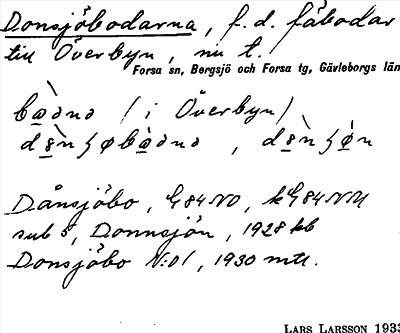 Donsjöbodarna, f.d. fäbodar
till Överbyn, nu t.
Forsa sn, Bergsjö och Forsa tg, Gävleborgs län
(i Överbyn)
Dånsjöbo, G84NO, kG84NV
sub 5, Donnsjön, 1928 kb
Donsjöbo N:o1, 1930 mtl.
LARS LARSSON 1933